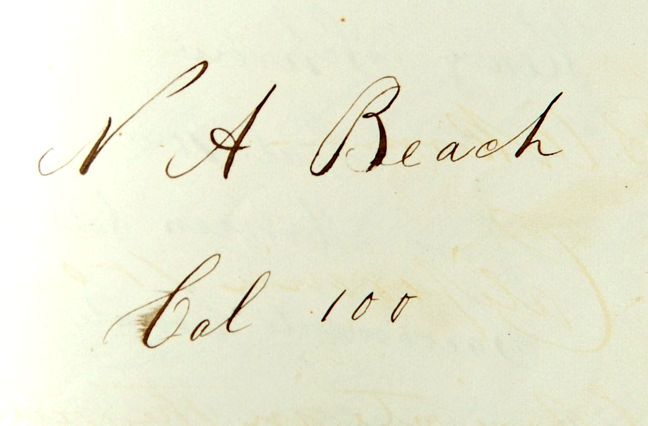 N A Beach
Col 100